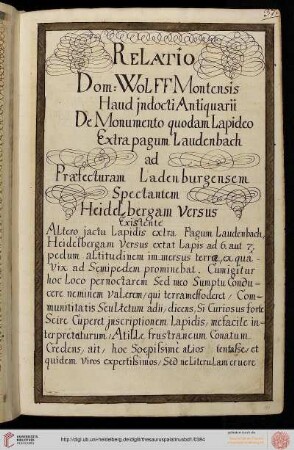 RELATIO
Dom: WOLFF Montensis
Haud jndocti Antiquarii
De Monumento quodam Lapideo
Extra pagum Laudenbach
ad
Præfecturam Ladenburgensem
Spectantem
Heidelbergam Versus
Existente
Altero jactu Lapidis extra Pagum Laudenbach,
Heidelbergam Versus extat Lapis ad 6. aut 7.
pedum altitudinem immersus terræ, ex qua
vix ad Semipedem prominebat. Cumigitur
hoc Loco pernoctarem Sed meo Sumptu Condu-
cere neminem valerem, qui terram effoderet, Com-
munitatis Scultetum adii, dicens, Si Curiosus forte
Scire Cuperet jnscriptionem Lapidis, me facile in-
terpretaturum, At ille frustraneum Conatum
Credens, ait, hoc Soepissime alios tentasse, et
quidem Viros expertissimos, Sed ne Literulam eruere